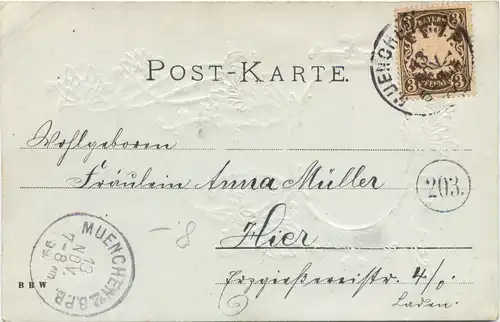 BAYERN
3 3
3 3
PFENNIG
MUENCHEN
POST-KARTE.
Wohlgeboren
Fräulein Anna Müller
203.
Hier
Erzgießereistr. 4/0
Laden.
-.8
MUENCHEN 2.B.P.B.
13
NOV.
7-8
BBW